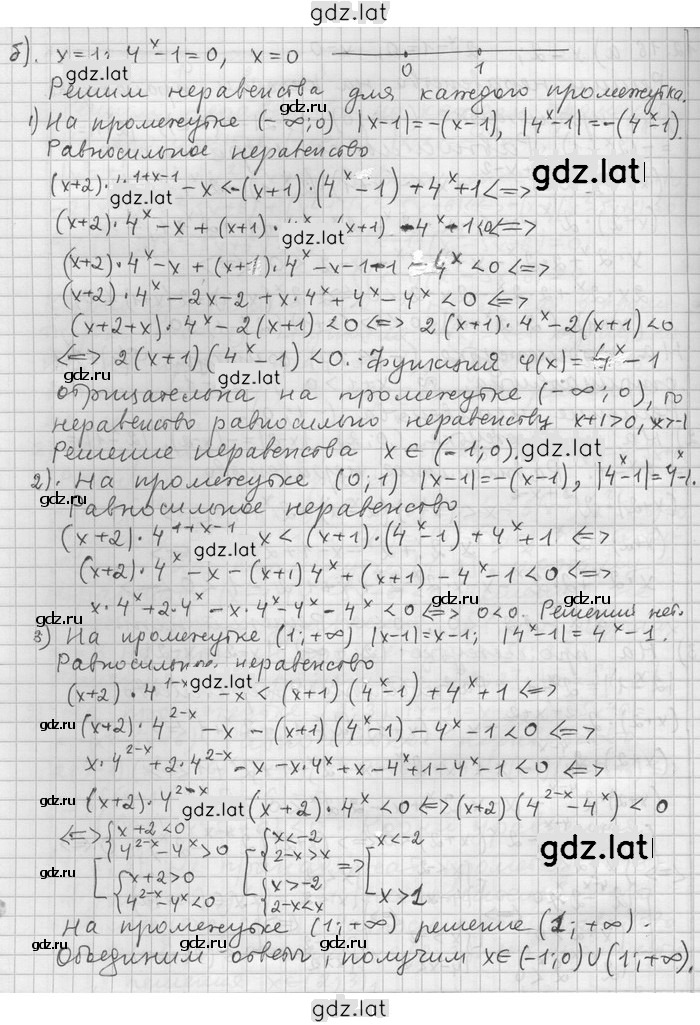 gdz.lat
б). x=1; 4^x-1=0, x=0
0 1
gdz.lat
Решим неравенства для каждого промежутка.
1) На промежутке (-∞;0) |x-1|=-(x-1), |4^x-1|=-(4^x-1).
Равносильное неравенство
gdz.lat
(x+2)· 1+x-1 -x<-(x+1)·(4^x-1)+4^x+1<=>
(x+2)·4^x-x+(x+1)· (x+1) -4^x-1<0<=>
gdz.lat
(x+2)·4^x-x+(x+1)·4^x-x-1-1-4^x<0<=>
(x+2)·4^x-2x-2+x·4^x+4^x-4^x<0<=>
(x+2+x)·4^x-2(x+1)<0<=>2(x+1)·4^x-2(x+1)<0
<=>2(x+1)(4^x-1)<0. Функция φ(x)=4^x-1
gdz.ru
gdz.lat
отрицательна на промежутке (-∞;0), то
неравенство равносильно неравенству x+1>0, x>-1
Решение неравенства x∈(-1;0). gdz.lat
2). На промежутке (0;1) |x-1|=-(x-1), |4^x-1|=4^x-1.
gdz.ru
Равносильное неравенство
(x+2)·4^1+x-1 x<(x+1)·(4^x-1)+4^x+1 <=>
gdz.lat
(x+2)·4^x-x-(x+1)4^x+(x+1)-4^x-1<0<=>
x·4^x+2·4^x-x·4^x-4^x-4^x<0<=>0<0. Решений нет.
gdz.ru
gdz.lat
3) На промежутке (1;+∞) |x-1|=x-1; |4^x-1|=4^x-1.
Равносильное неравенство
(x+2)·4^1-x gdz.lat -x<(x+1)(4^x-1)+4^x+1<=>
gdz.ru
(x+2)·4^2-x-x-(x+1)(4^x-1)-4^x-1<0<=>
x·4^2-x+2·4^2-x-x-x·4^x+x-4^x+1-4^x-1<0<=>
gdz.ru (x+2)·4^2-x gdz.lat (x+2)·4^x<0<=>(x+2)(4^2-x-4^x)<0
<=> {x+2<0 {x<-2 x<-2
4^2-x-4^x>0 2-x>x =>
gdz.lat
{x+2>0 {x>-2 x>1
4^2-x-4^x<0 2-x<x
На промежутке (1;+∞) решение (1;+∞).
Объединим ответы, получим x∈(-1;0)∪(1;+∞).
gdz.lat